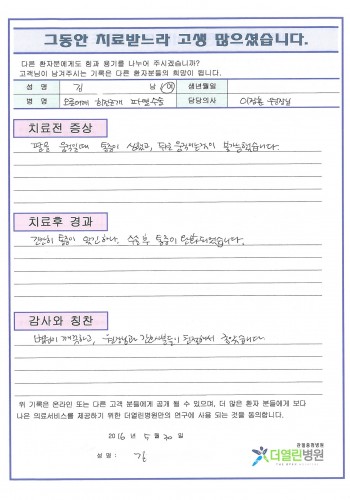 그동안 치료받느라 고생 많으셨습니다.
다른 환자분에게도 힘과 용기를 나누어 주시겠습니까?
고객님이 남겨주시는 기록은 다른 환자분들의 희망이 됩니다.
성 명 김 남 / 여 생년월일
병 명 오른어깨 회전근개 파열수술 담당의사 원장님
치료전 증상
팔을 움직일때 통증이 심했고, 팔을 움직이는것이 불가능했습니다.
치료후 경과
간간히 통증이 있긴하나, 수술후 통증이 완화되었습니다.
감사와 칭찬
병원이 깨끗하고, 원장님과 간호사분들이 친절해서 좋았습니다.
위 기록은 온라인 또는 다른 고객 분들에게 공개 될 수 있으며, 더 많은 환자 분들에게 보다
나은 의료서비스를 제공하기 위한 더열린병원만의 연구에 사용 되는 것을 동의합니다.
2016 년 5 월 30 일
성 명 : 김
관절중점병원
더열린병원